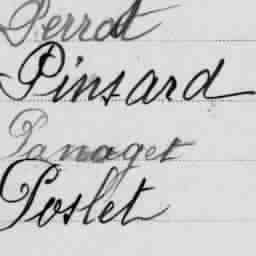 Perrot
Pinsard
Panaget
Poslet